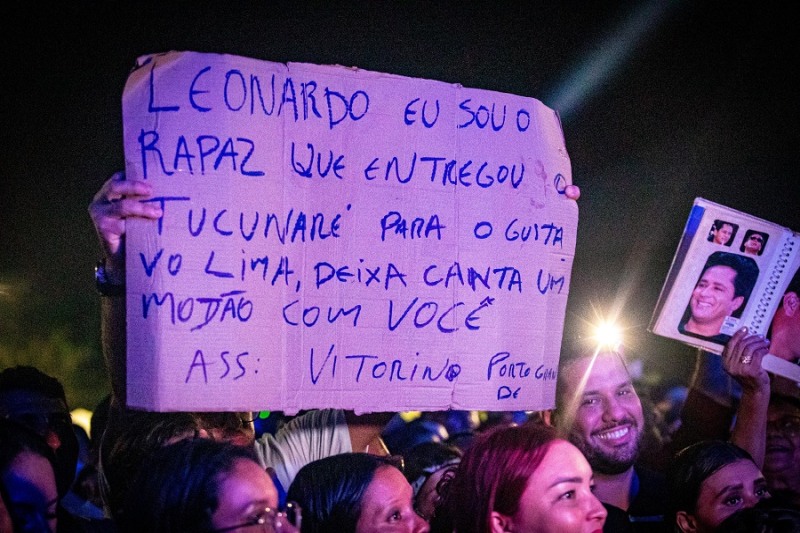 LEONARDO EU SOU O
RAPAZ QUE ENTREGOU O
TUCUNARÉ PARA O GUSTA
VO LIMA, DEIXA CANTA UM
MODÃO COM VOCÊ
ASS: VITORINO PORTO GRAN
DE